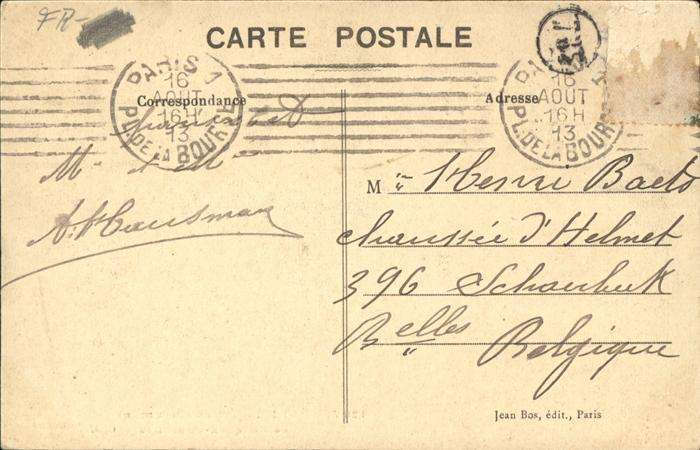 FR-
CARTE POSTALE
PARIS 1
16
AOUT
16H
13
PL. DE LA BOURSE
PARIS 1
16
AOUT
16H
13
PL. DE LA BOURSE
Correspondance
Adresse
M
A. Hausman
M Henri Baets
chaussée d'Helmet
396 Schaerbeek
Belgique
Jean Bos, édit., Paris